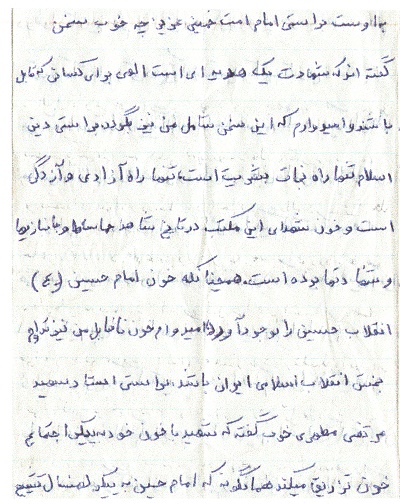 با اوست براستی امام امت خمینی عزیز چه خوب سخن
گفته اند که شهادت یک هدیه ای است الهی برای کسانی که قابل
باشند و امیدوارم که این سخن شامل من نیز بگردد براستی دین
اسلام تنها راه نجات بشریت است، تنها راه آزادی و آزادگی
است و خون شهدای این مکتب در تاریخ شاهد حماسه ها و جانبازیها
و شهادتها بوده است. همچنانکه خون امام حسین (ع)
انقلاب حسین را بوجود آورد امیدوارم خون ناقابل من نیز تداوم
بخش انقلاب اسلامی ایران باشد. براستی استاد شهید
مرتضی مطهری خوب گفته که شهید با خون خود به پیکر اجتماع
خون تزریق میکند همانگونه که امام حسین به پیکر تشیع